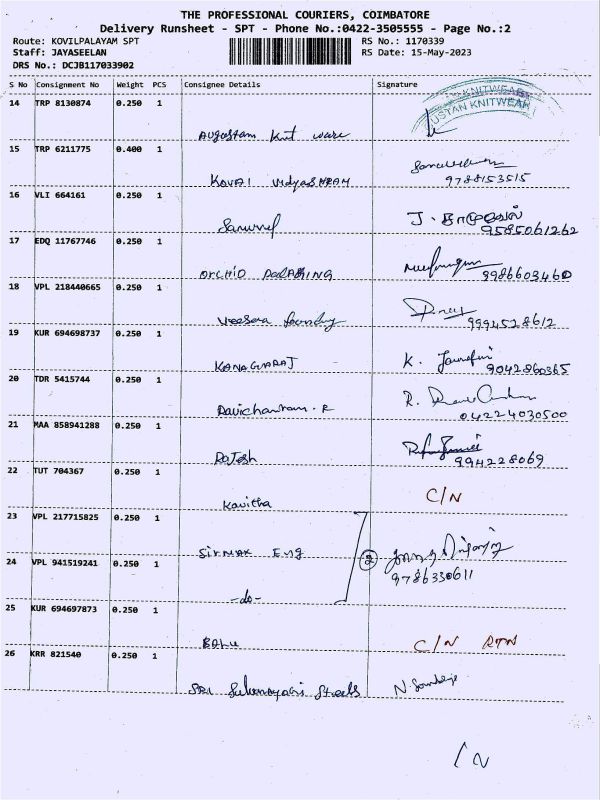 THE PROFESSIONAL COURIERS, COIMBATORE
Delivery Runsheet - SPT - Phone No.:0422-3505555 - Page No.:2
Route: KOVILPALAYAM SPT RS No.: 1170339
Staff: JAYASEELAN RS Date: 15-May-2023
DRS No.: DCJB117033902
S No Consignment No Weight PCS Consignee Details Signature
14 TRP 8130874 0.250 1
KNITWEAR
KNITWEAR
Knit ware
15 TRP 6211775 0.400 1
KOVAI VidyaSHRAM 9788153515
16 VLI 664161 0.250 1
Samuvel J. 9585061262
17 EDQ 11767746 0.250 1
ORCHID 9986603460
18 VPL 218440665 0.250 1
Veesera foundry 9994528612
19 KUR 694698737 0.250 1
KANAGARAJ K. 9042860365
20 TDR 5415744 0.250 1
R.
04224030500
21 MAA 858941288 0.250 1
Rajesh 994228069
22 TUT 704367 0.250 1
Kavitha C/N
23 VPL 217715825 0.250 1
Sirmax Eng 2
24 VPL 941519241 0.250 1
9786330611
-do-
25 KUR 694697873 0.250 1
BALU C/N RTN
26 KRR 821540 0.250 1
SRI Steels N.